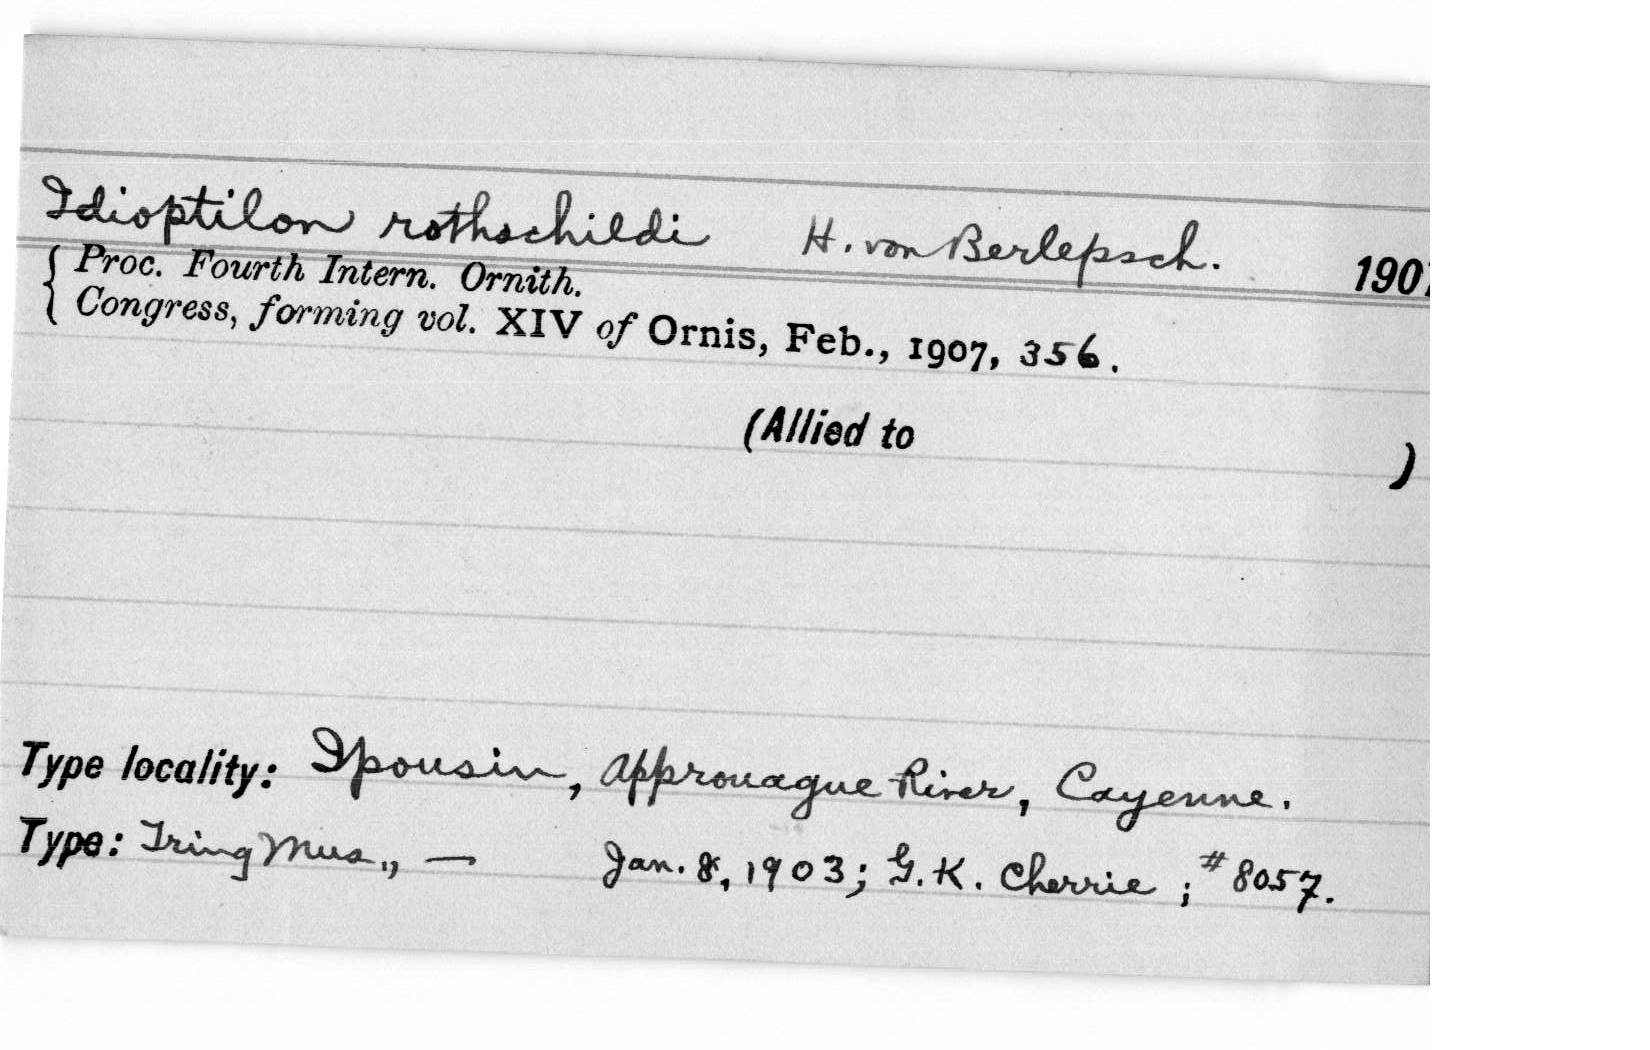 Idioptilon rothschildi H. von Berlepsch. 1907
{ Proc. Fourth Intern. Ornith.
Congress, forming vol. XIV of Ornis, Feb., 1907, 356.
(Allied to )
Type locality: Ipousin, Approuague River, Cayenne.
Type: Tring Mus., — Jan. 8, 1903; G. K. Cherrie; #8057.